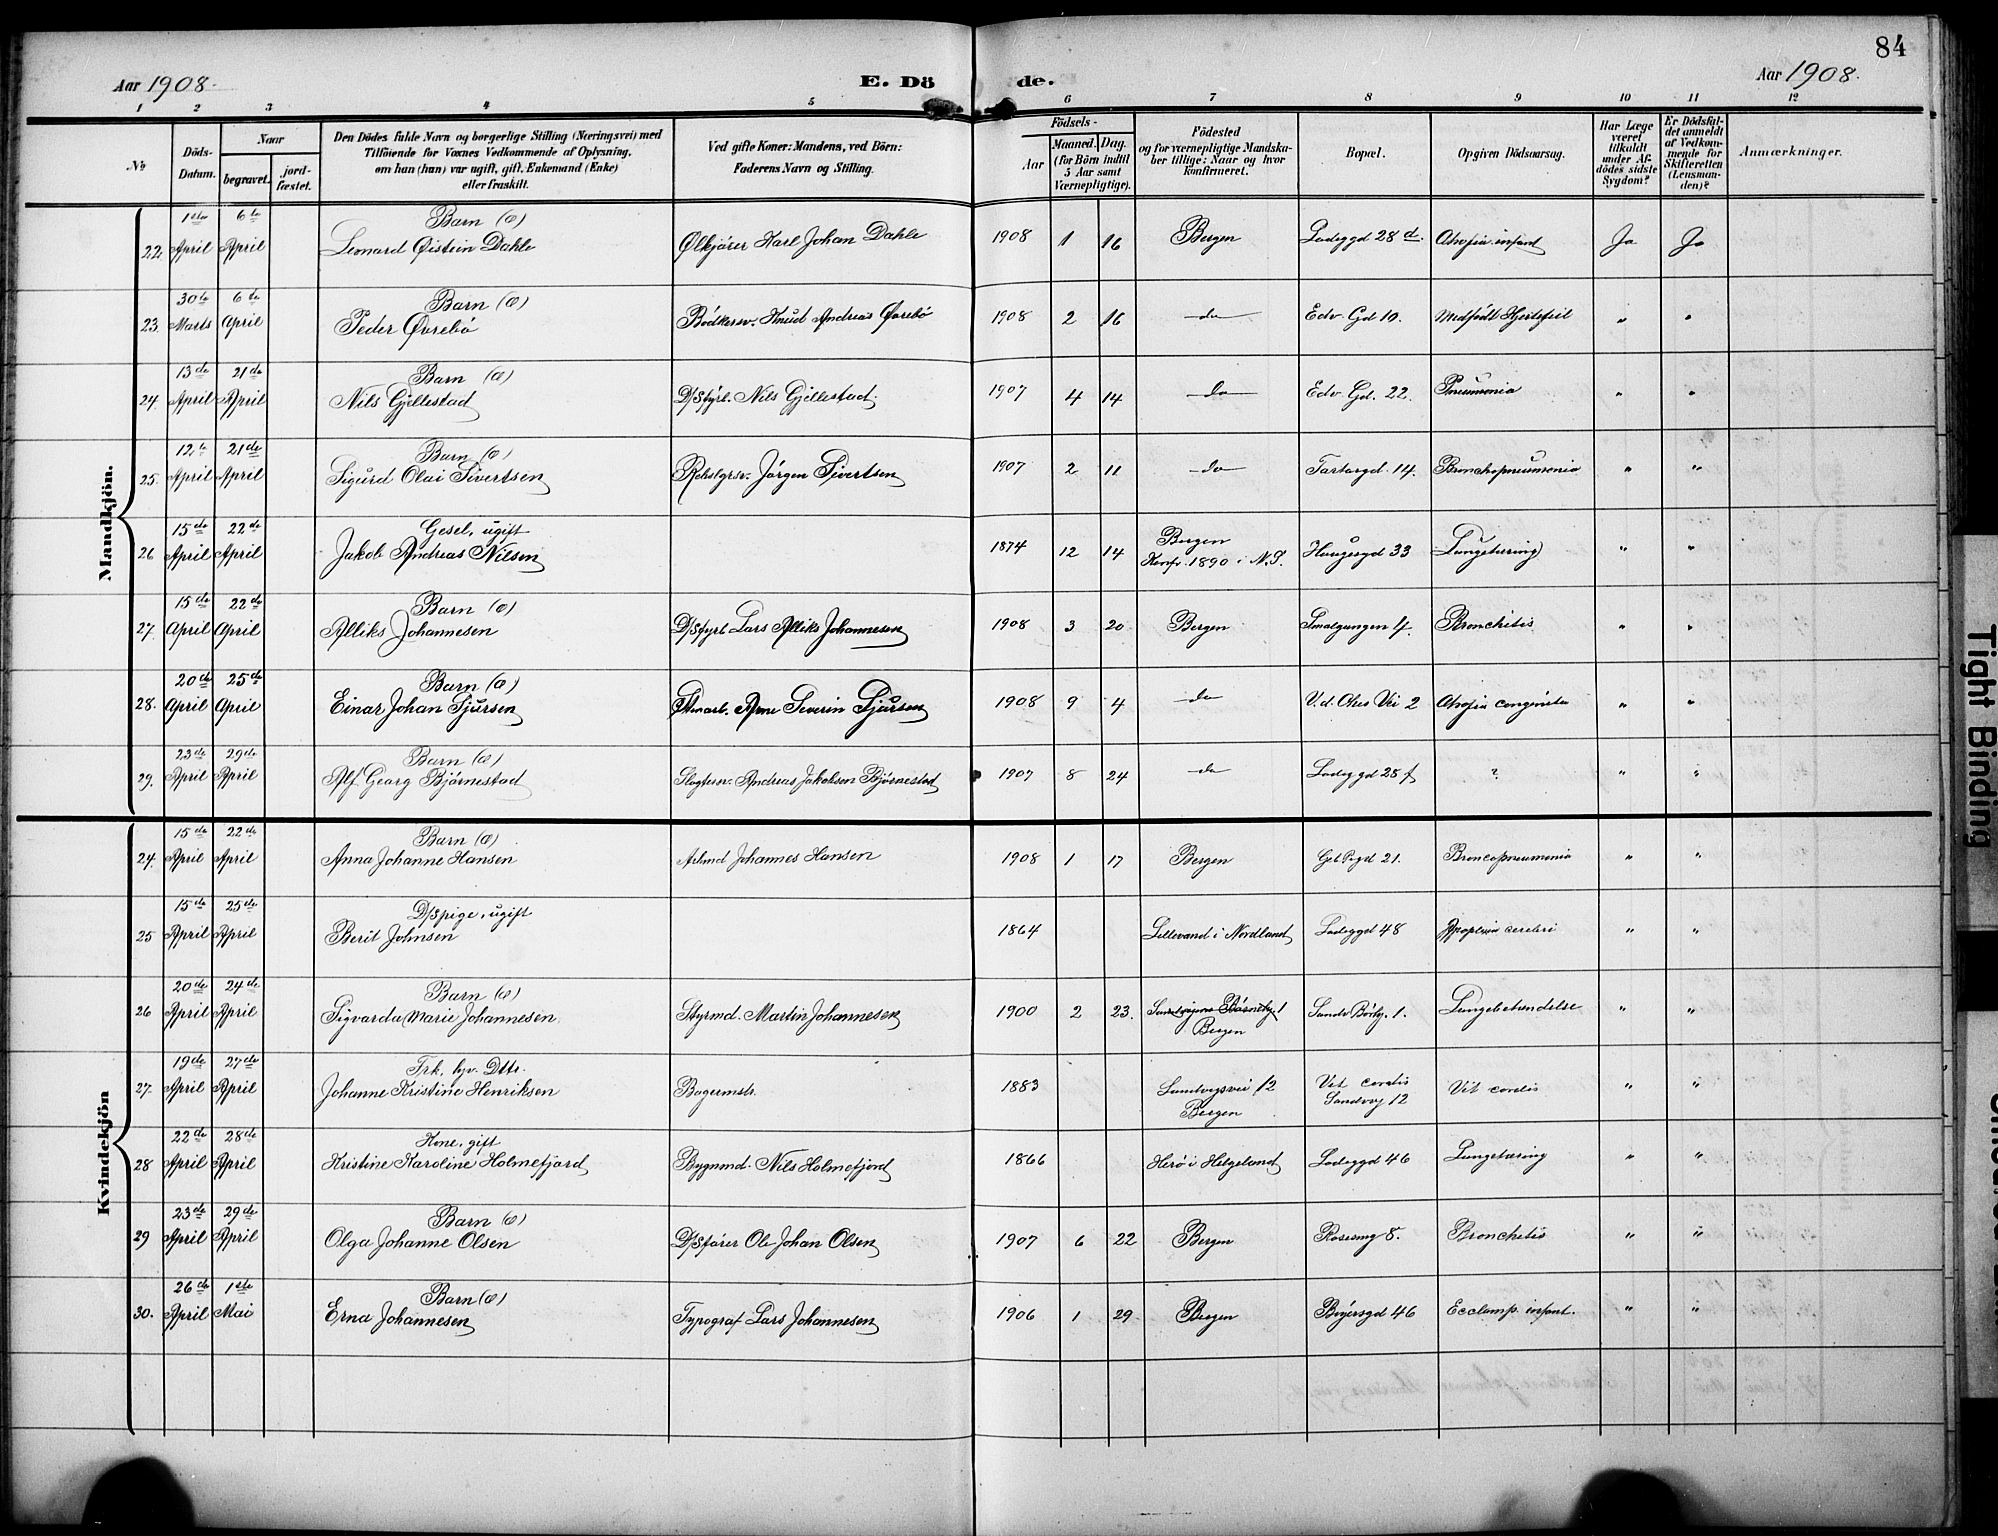 84
Aar 1908. E. Döde. Aar 1908.
1 2 3 4 5 6 7 8 9 10 11 12
No
Döds-Datum.
Naar
begravet.
jord-fæstet.
Den Dödes fulde Navn og borgerlige Stilling (Næringsvei) med
Tilföiende for Voxnes Vedkommende af Oplysning,
om han (hun) var ugift, gift, Enkemand (Enke)
eller fraskilt.
Ved gifte Koner: Mandens, ved Börn:
Faderens Navn og Stilling.
Födsels-
Aar
Maaned. Dag.
(for Börn indtil
5 Aar samt
Værnepligtige).
Födested
og for værnepligtige Mandska-
ber tillige: Naar og hvor
konfirmeret.
Bopæl.
Opgiven Dödsaarsag.
Har Læge
været
tilkaldt
under Af-
dödes sidste
Sygdom?
Er Dödsfal-
det anmeldt
af Vedkom-
mende for
Skifteretten
(Lensman-
den)?
Anmærkninger.
Mandkjön.
22. 1ste April 6te April Barn (Æ) Leonard Øistein Dahle Ølkjører Karl Johan Dahle 1908 1 16 Bergen Ladeggd 28 d. Atrofia infant Ja Ja
23. 30te Marts 6te April Barn (Æ) Peder Øvrebö Bödkersv. Knud Andreas Øvrebö 1908 2 16 do Edv. Gd 10. Medfödt Hjertefeil " "
24. 13de April 21de April Barn (Æ) Nils Gjellestad D/Styrl. Nils Gjellestad. 1907 4 14 do Edv. Gd. 22. Pneumonia " "
25. 12te April 21de April Barn (Æ) Sigurd Olai Sivertsen Rebslgrsv. Jörgen Sivertsen 1907 2 11 do Tartargd. 14. Bronchopneumonia " "
26 15de April 22de April Gesel, ugift Jakob Andreas Nilsen 1874 12 14 Bergen Konfr. 1890 i N.P. Haugesgd 33 Lungetæring " "
27. 15de April 22de April Barn (Æ) Alliks Johannesen D/Styrl Lars Alliks Johannesen 1908 3 20 Bergen Smalgangen 4. Bronchitis " "
28. 20de April 25de April Barn (Æ) Einar Johan Sjursen Arne Severin Sjursen 1908 9 4 do 2 Atrofia congenita " "
29. 23de April 29de April Barn (Æ) Alf Georg Bjørnestad Slagtersv. Andreas Jakobsen Bjørnestad 1907 8 24 do Ladeggd 25 f ? " "
Kvindekjön
24. 15de April 22de April Barn (Æ) Anna Johanne Hansen Arbmd Johannes Hansen 1908 1 17 Bergen 21. Broncopneumonia " "
25 15de April 25de April D/Spige, ugift Berit Johnsen 1864 Lillevand i Nordland Ladeggd 48 Apoplexia cerebri " "
26 20de April 24de April Barn (Æ) Sigvarda Marie Johannesen Styrmd. Martin Johannesen 1900 2 23. Bergen Sandv. 1. Lungebetændelse " "
27. 19de April 27de April Frk. hjv. Dttr. Johanne Kristine Henriksen Bagermstr. 1883 Sandvigsvei 12 Bergen Vit cordis Sandvvg 12 Vit cordis " "
28 22de April 28de April Kone, gift Kristine Karoline Holmefjord Bygnmd. Nils Holmefjord 1866 Herö i Helgeland Ladeggd 46 Lungetæring " "
29 23de April 29de April Barn (Æ) Olga Johanne Olsen D/Sförer Ole Johan Olsen 1907 6 22 Bergen Rosesmg 8. Bronchitis " "
30. 26de April 1ste Mai Barn (Æ) Erna Johannesen Typograf Lars Johannesen 1906 1 29 Bergen Bøiersgd 46 Ecclamp. infant. " "
Tight Binding